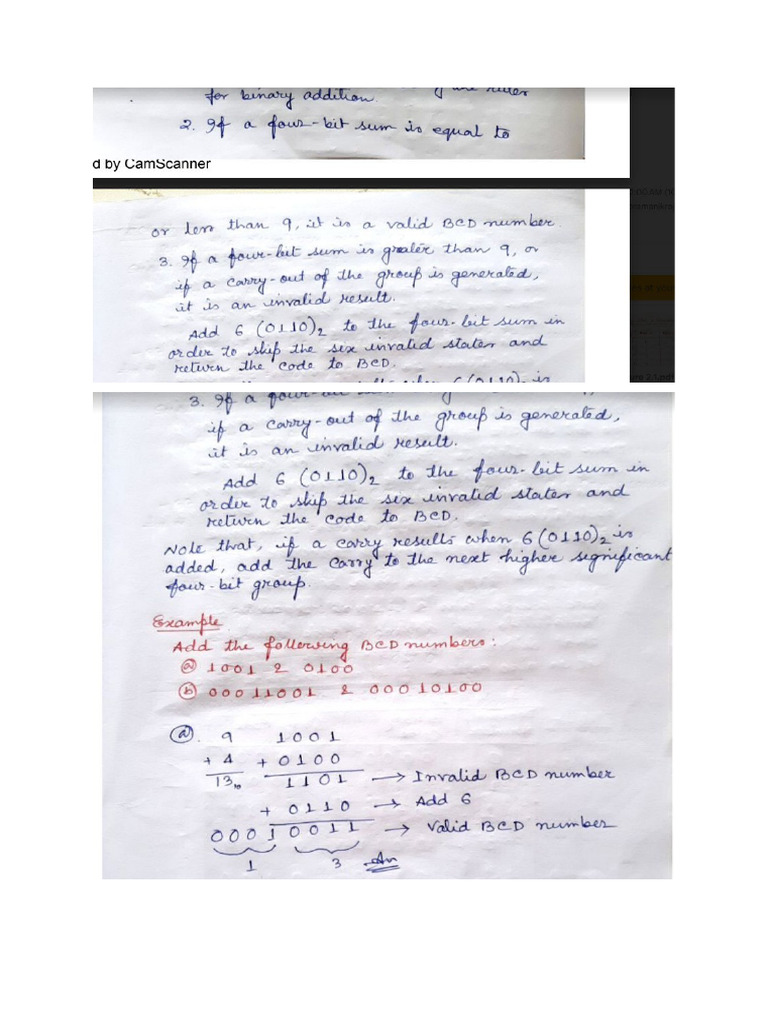 for binary addition.
2. If a four-bit sum is equal to
d by CamScanner
or less than 9, it is a valid BCD number.
3. If a four-bit sum is greater than 9, or
if a carry-out of the group is generated,
it is an invalid result.
Add 6 (0110)2 to the four-bit sum in
order to skip the six invalid states and
return the code to BCD.
3. If a four-bit
if a carry-out of the group is generated,
it is an invalid result.
Add 6 (0110)2 to the four-bit sum in
order to skip the six invalid states and
return the code to BCD.
Note that, if a carry results when 6 (0110)2 is
added, add the carry to the next higher significant
four-bit group.
Example
Add the following BCD numbers:
(a) 1001 & 0100
(b) 00011001 & 00010100
(a). 9 1001
+ 4 + 0100
1310 1101 → Invalid BCD number
+ 0110 → Add 6
0001 0011 → Valid BCD number
1 3 An